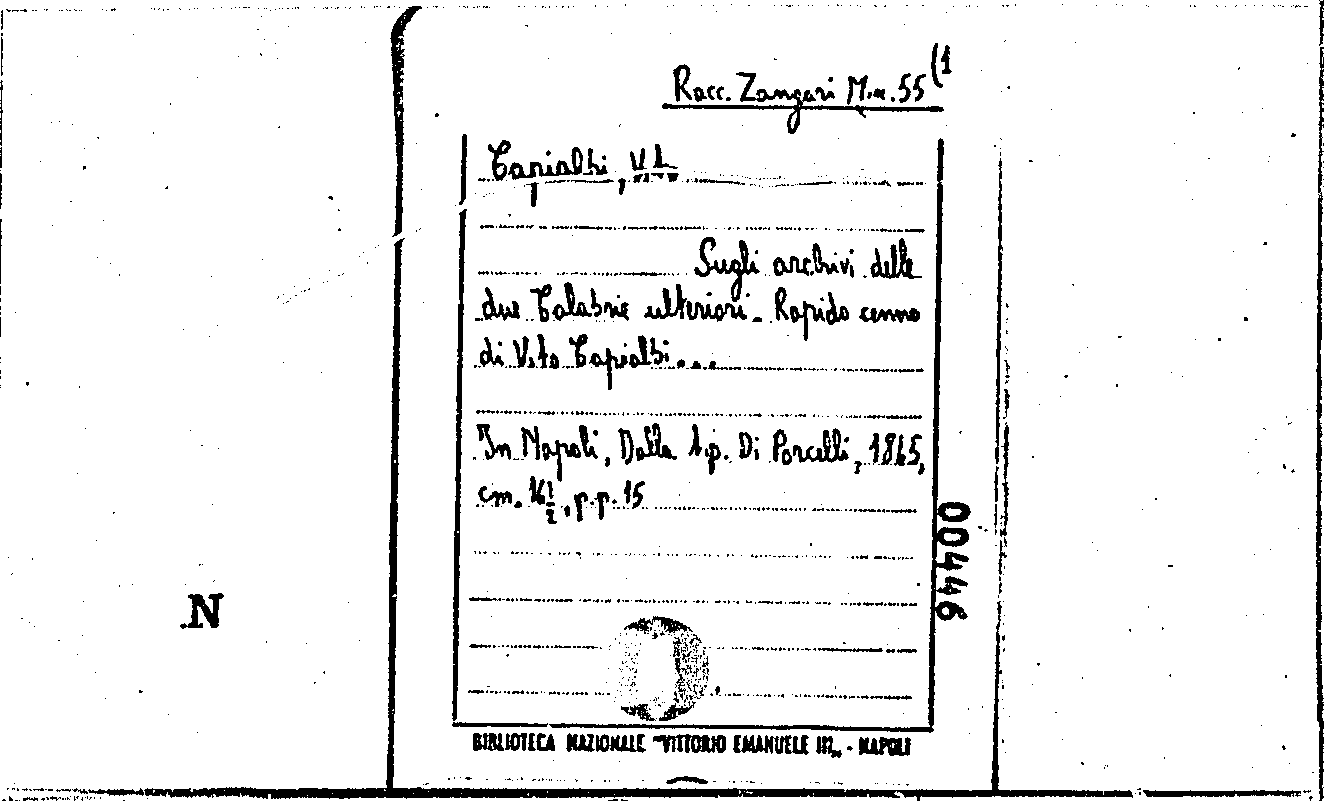 Racc. Zangari M.a. 55 (1
Capialbi, Vito
Sugli archivi delle
due Calabrie ulteriori. Rapido cenno
di Vito Capialbi...
In Napoli, Dalla tip. Di Porcelli, 1845,
cm. 16 1/2, p.p. 15
00446
N
BIBLIOTECA NAZIONALE "VITTORIO EMANUELE III" - NAPOLI